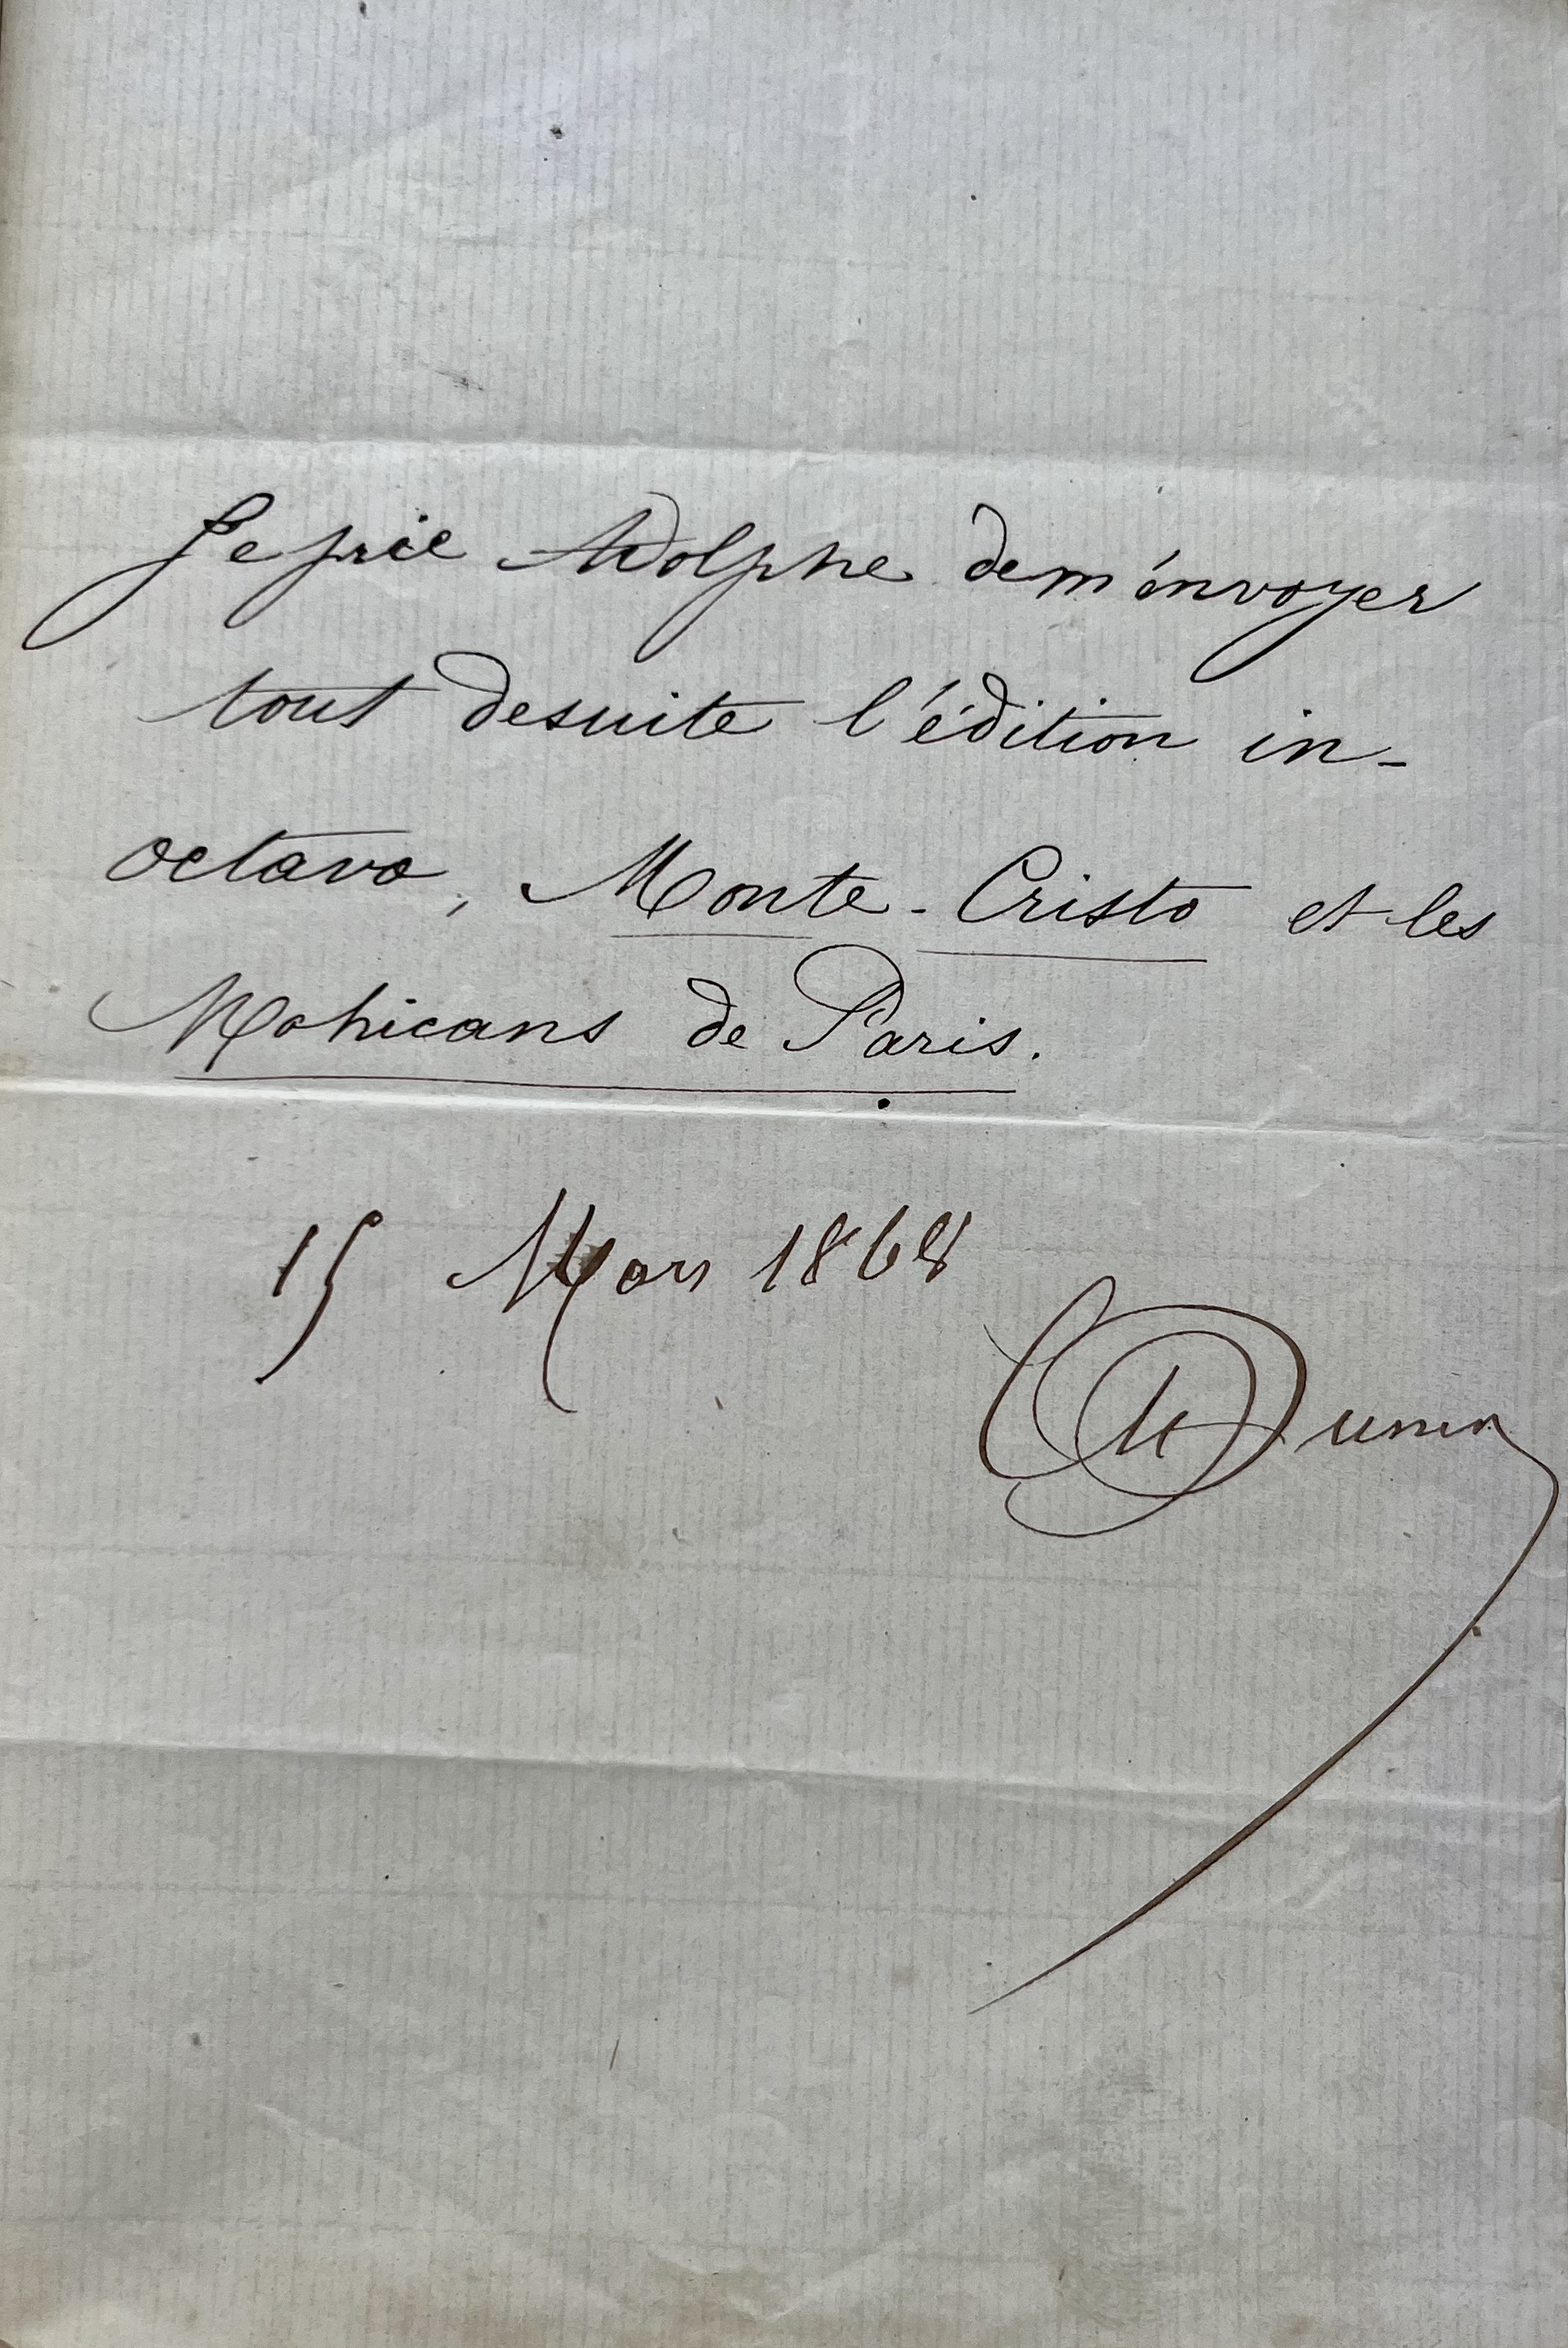 Je prie Adolphe de m'envoyer
tout desuite l'édition in-
octavo, Monte-Cristo et les
Mohicans de Paris.
15 Mars 1868
A Dumas